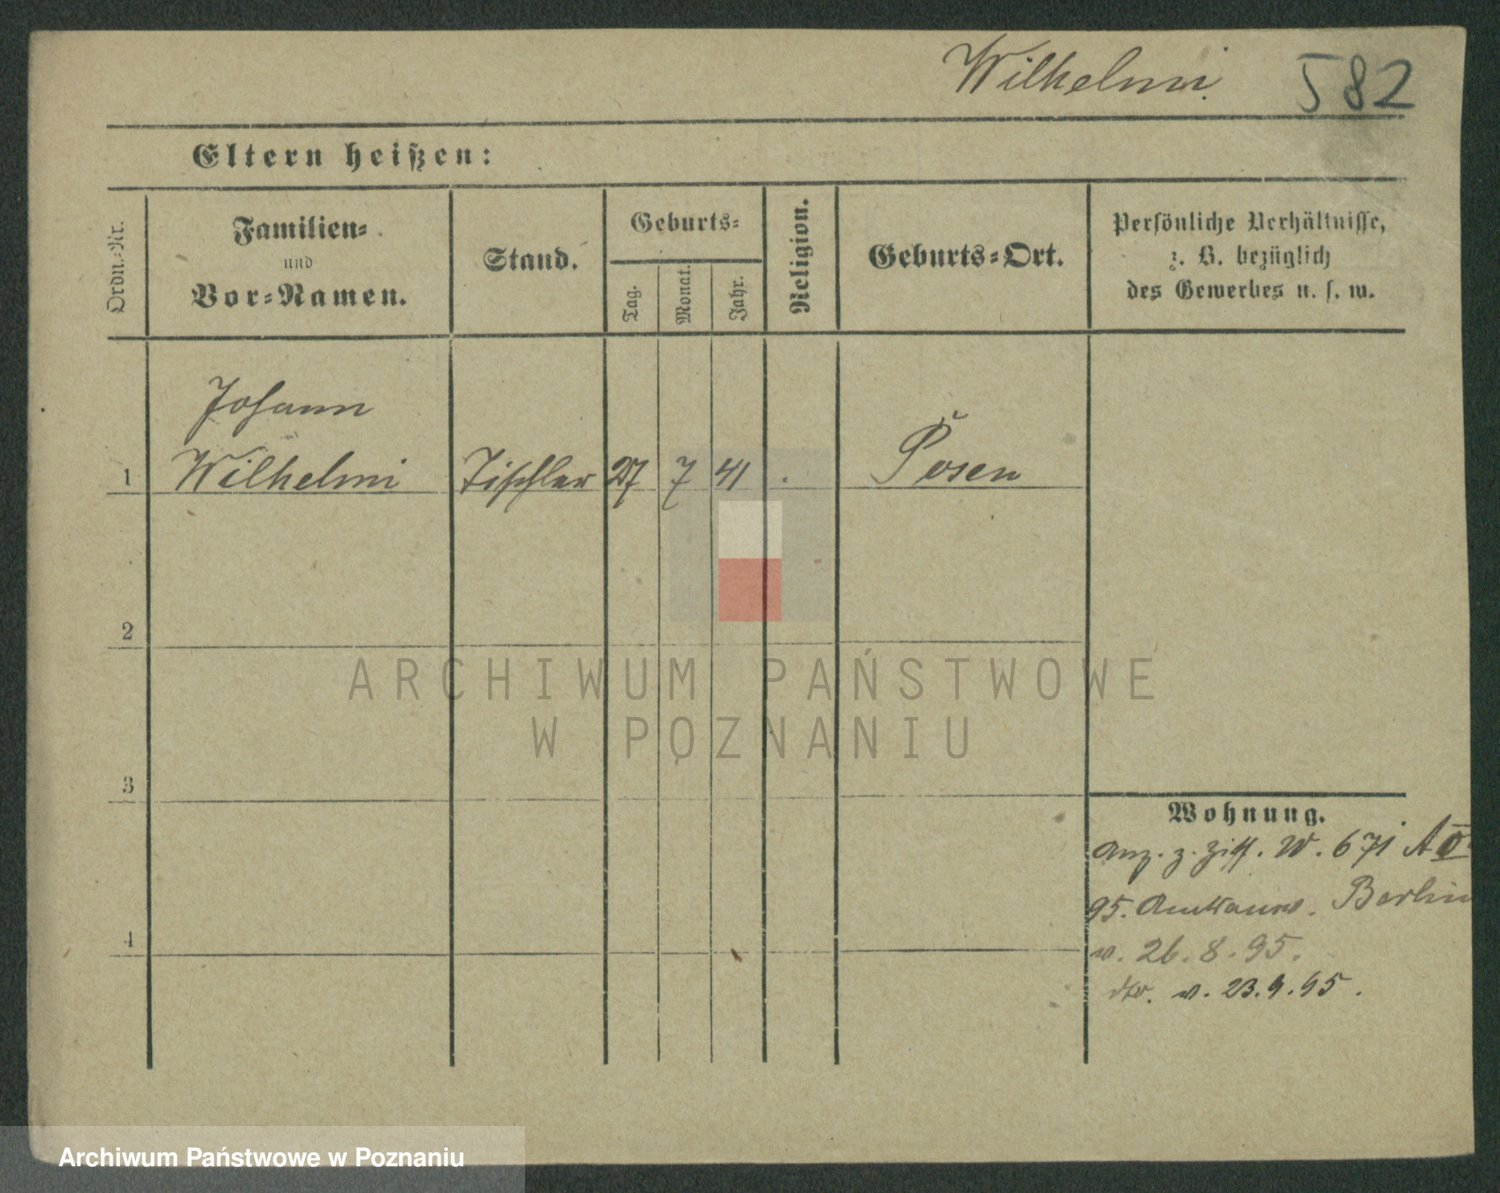 Wilhelmi 582
Eltern heißen:
Ordn.-Nr.
Familien-
und
Vor-Namen.
Stand.
Geburts-
Tag.
Monat.
Jahr.
Religion.
Geburts-Ort.
Persönliche Verhältnisse,
z. B. bezüglich
des Gewerbes u. s. w.
Johann
1 Wilhelmi Tischler 27 7 41 Posen
2
3
4
Wohnung.
Anz. z. Ziff. W. 671
95. Berlin
v. 26.8.95.
dto. v. 23.9.95.
ARCHIWUM PAŃSTWOWE
W POZNANIU
Archiwum Państwowe w Poznaniu